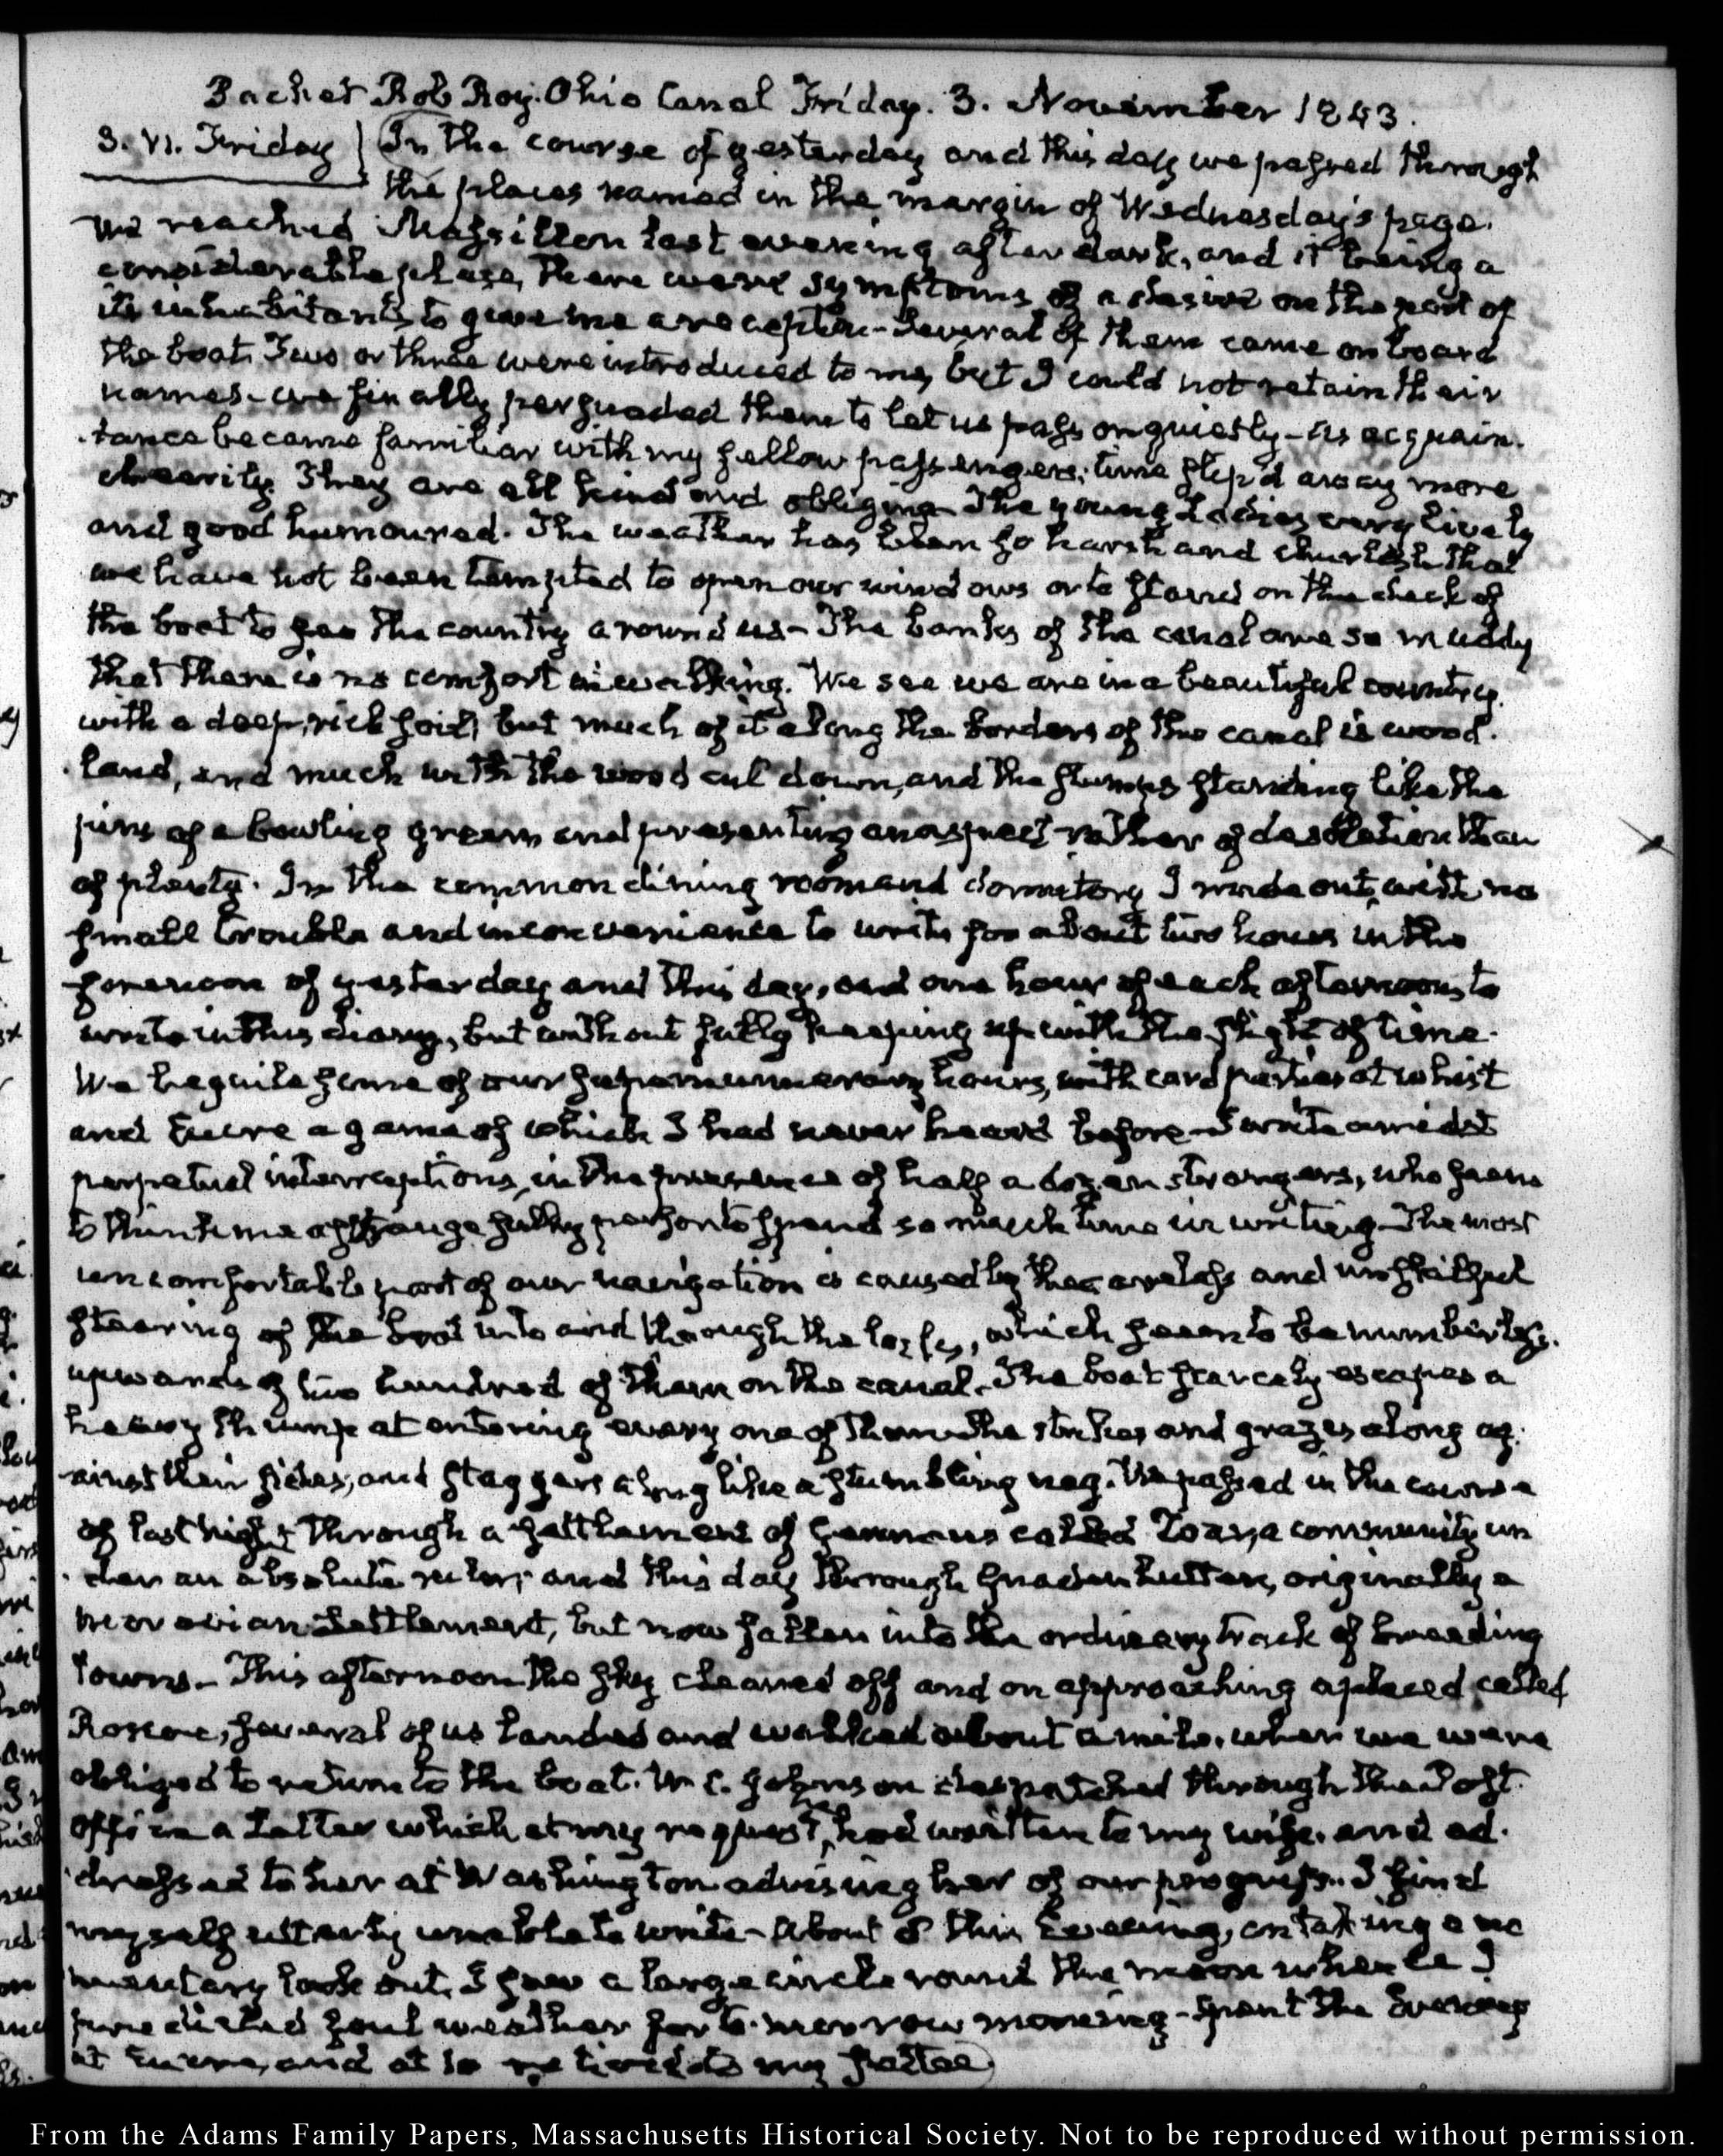 Packet Rob Roy. Ohio Canal Friday. 3. November 1843.
3. VI. Friday
In the course of yesterday and this day we passed through
the places named in the margin of Wednesday's page.
We reached Massillon last evening after dark, and it being a
considerable place, there were symptoms of a desire on the part of
its inhabitants to give me a reception - Several of them came on board
the boat. Two or three were introduced to me, but I could not retain their
names - we finally persuaded them to let us pass on quietly - As acquain-
tance became familiar with my fellow passengers, time slip'd away more
cheerily. They are all kind and obliging - The young Ladies very lively
and good humoured. The weather has been so harsh and churlish that
we have not been tempted to open our windows or to stand on the deck of
the boat to see the country around us - The banks of the canal are so muddy
that there is no comfort in walking. We see we are in a beautiful country.
with a deep, rich soil, but much of it along the borders of the canal is wood-
land, and much with the wood cut down, and the stumps standing like the
pins of a bowling green and presenting an aspect rather of desolation than
of plenty. In the common dining room and dormitory I made out, with no
small trouble and inconvenience to write for about two hours in the
forenoon of yesterday and this day, and one hour of each afternoon, to
write in this diary, but without fully keeping up with the flight of time.
We beguile some of our supernumerary hours, with card parties at whist
and Eucre a game of which I had never heard before - I write amidst
perpetual interruptions, in the presence of half a dozen strangers, who seem
to think me a strange sulky person to spend so much time in writing - The most
uncomfortable part of our navigation is caused by the careless and unskilful
steering of the boat into and through the locks, which seem to be numberless,
upwards of two hundred of them on the canal. The boat scarcely escapes a
heavy thump at entering every one of them. She strikes and grazes along ag-
ainst their sides, and staggers along like a stumbling nag. We passed in the course
of last night through a settlement of Germans called Zoar, a community un-
der an absolute ruler; and this day through Gnadenhutten, originally a
Moravian Settlement, but now fallen into the ordinary track of breeding
towns - This afternoon the sky cleared off and on approaching a placed called
Roscoe, several of us landed and walked about a mile, when we were
obliged to return to the boat. Mr C. Johnson despatched through the Post-
office a Letter which at my request, had written to my wife, and ad-
dressed to her at Washington advising her of our progress. I find
myself utterly unable to write - About 8 this Evening, on taking a mo
mentary look out, I saw a large circle round the moon whence I
predicted foul weather for to-morrow morning - Spent the Evening
at Eucre, and at 10 retired to my settee
From the Adams Family Papers, Massachusetts Historical Society. Not to be reproduced without permission.